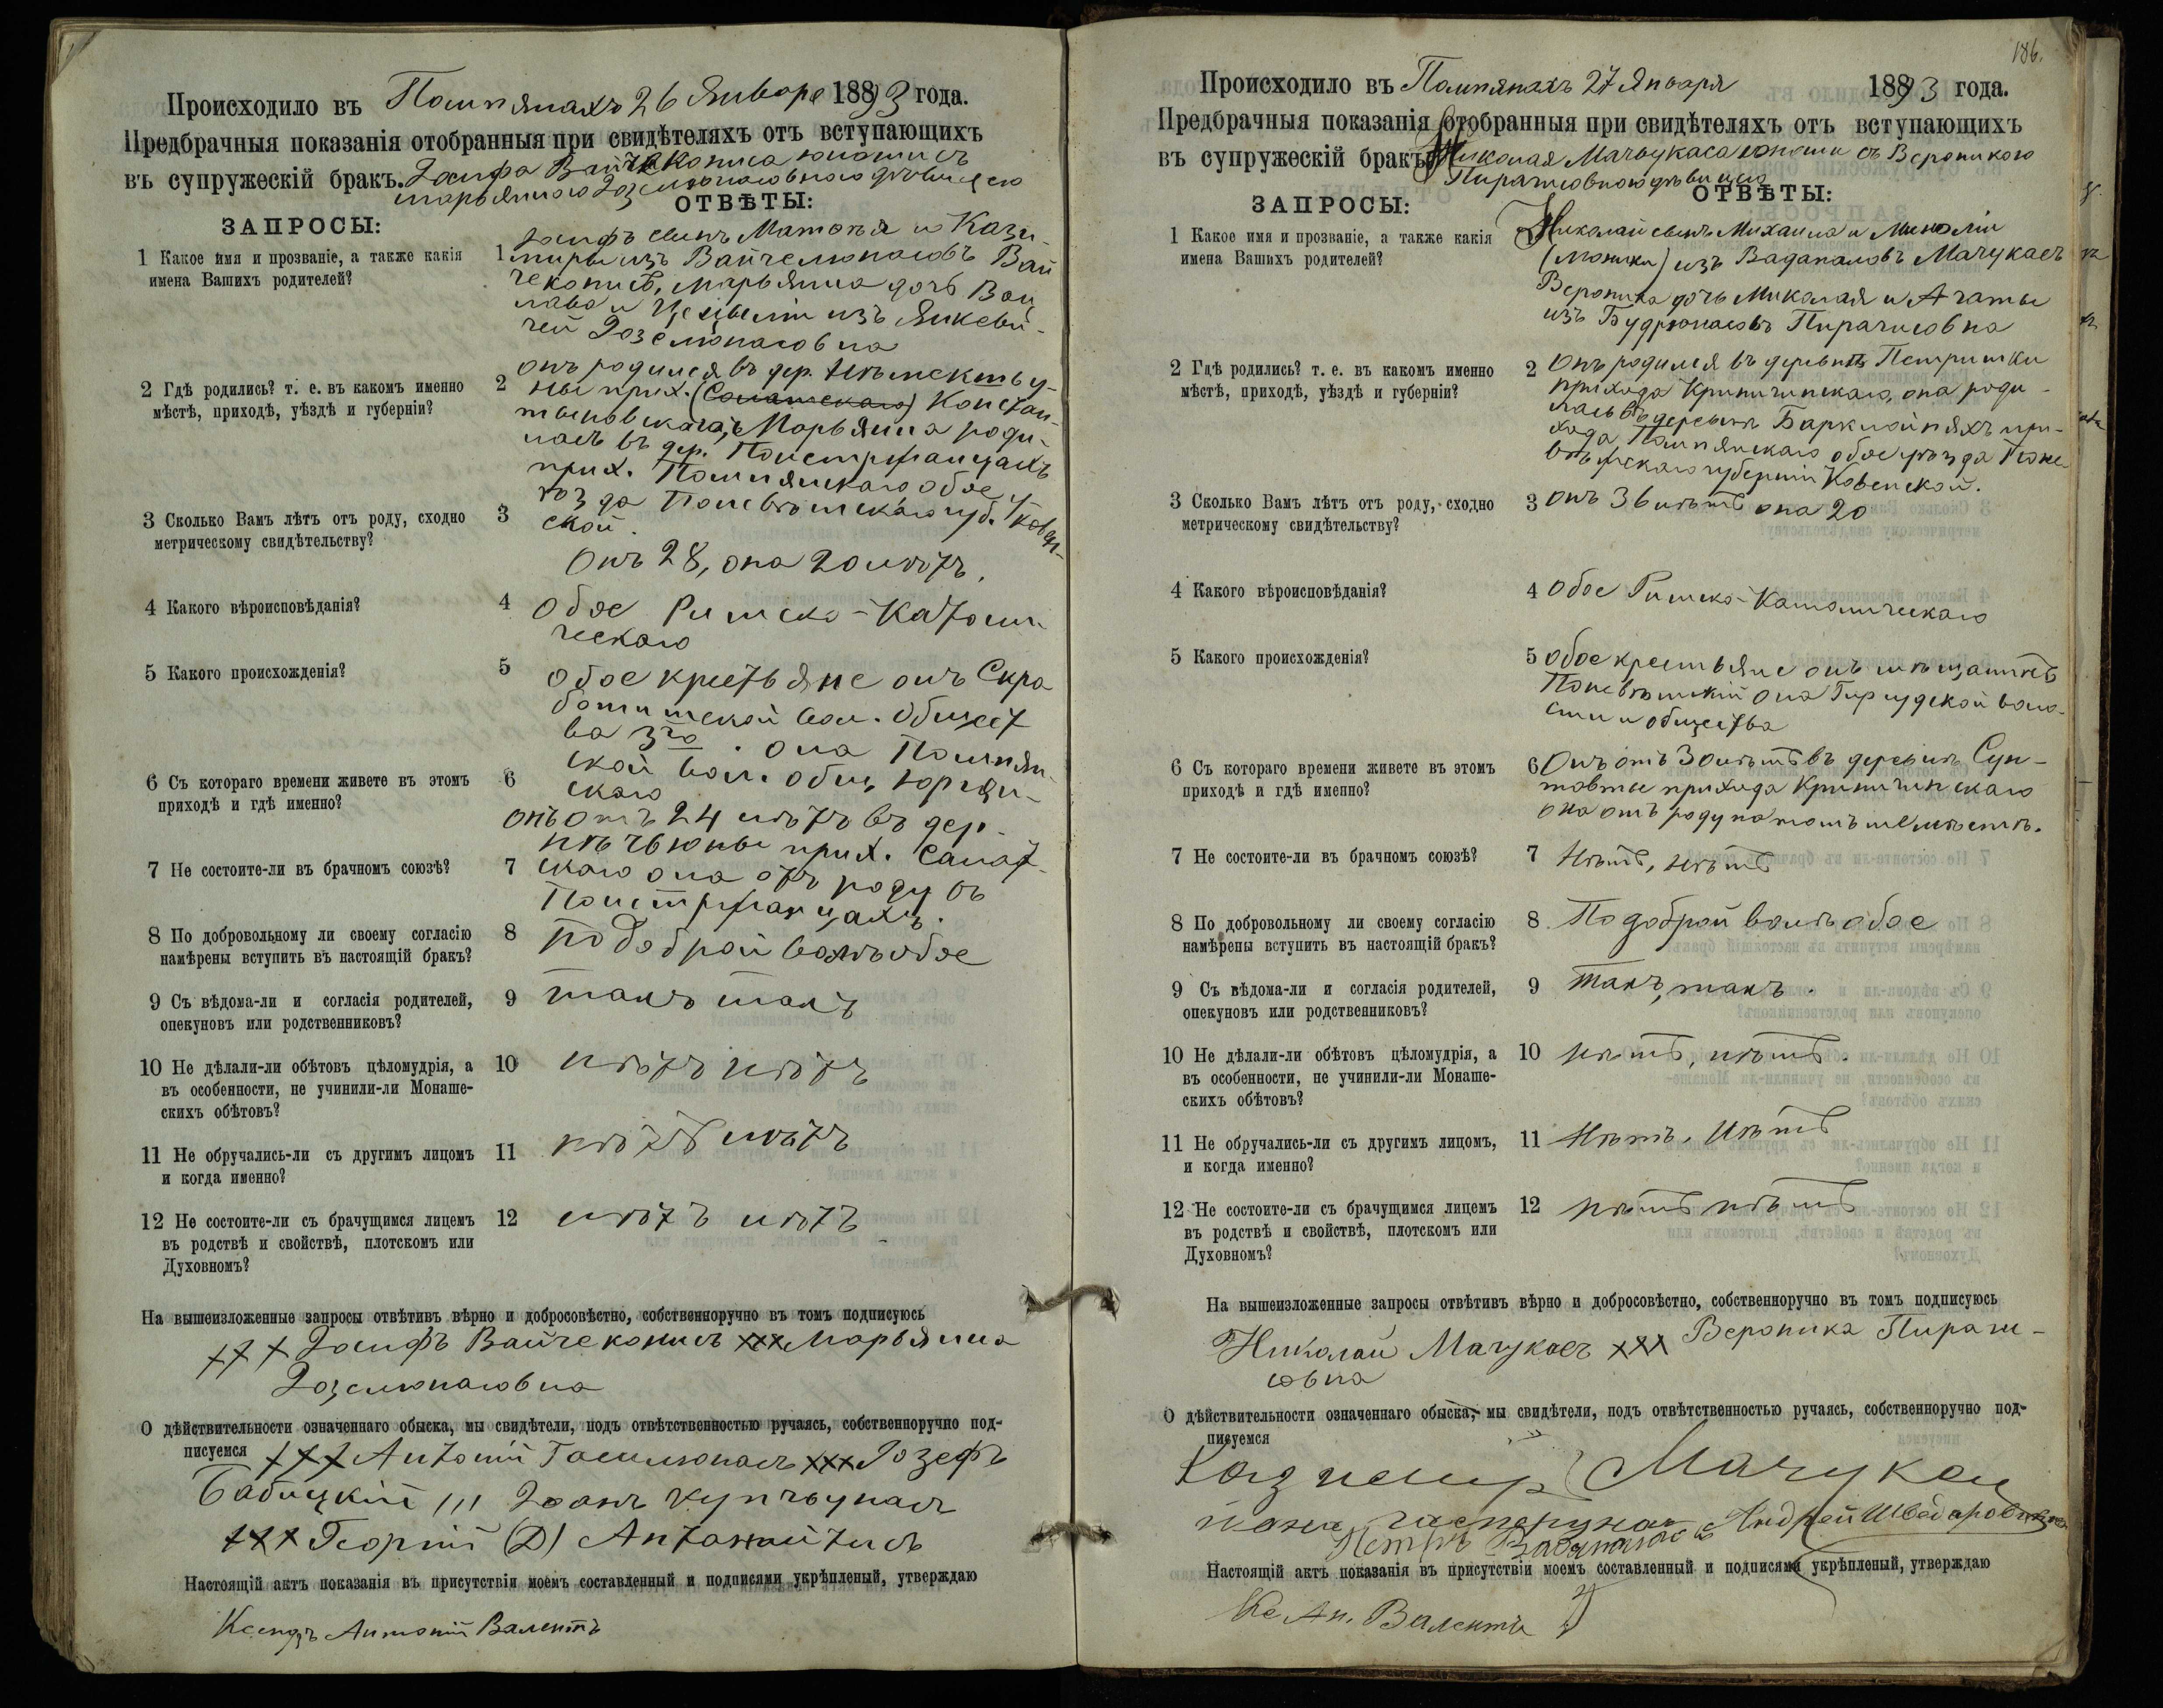 Происходило въ Помпянахъ 26 Января 1893 года.
Предбрачныя показанія отобранныя при свидѣтеляхъ отъ вступающихъ
въ супружескій бракъ. Іосифа Вайчекониса юноши съ
ЗАПРОСЫ:
ОТВѢТЫ:
1 Какое имя и прозваніе, а также какія
имена Вашихъ родителей?
1 Іосифъ сынъ Матвѣя и Кази-
миры изъ Вайчелюнасовъ Вай
чеконисъ, Марьянна дочь
изъ Янкеви-
чей
2 Гдѣ родились? т. е. въ какомъ именно
мѣстѣ, приходѣ, уѣздѣ и губерніи?
2 онъ родился въ дер.
прих. Констан-
тыновскаго, Марьянна роди-
лась въ дер.
прих. Помпянскаго обое у-
ѣзда Поневѣжскаго губ. Ковен-
ской.
3 Сколько Вамъ лѣтъ отъ роду, сходно
метрическому свидѣтельству?
3 Онъ 28, она 20 лѣтъ.
4 Какого вѣроисповѣданія?
4 Обое Римско-Католи-
ческаго
5 Какого происхожденія?
5 обое крестьяне онъ Скро
ботишской вол. Общест
ва 3го. она Помпян-
ской вол. общ.
6 Съ котораго времени живете въ этомъ
приходѣ и гдѣ именно?
6 онъ отъ 24 лѣтъ въ дер.
прих. Салат-
скаго она отъ роду въ
7 Не состоите-ли въ брачномъ союзѣ?
7
8 По добровольному ли своему согласію
намѣрены вступить въ настоящій бракъ?
8 по доброй волѣ обое
9 Съ вѣдома-ли и согласія родителей,
опекуновъ или родственниковъ?
9 такъ такъ
10 Не дѣлали-ли обѣтовъ цѣломудрія, а
въ особенности, не учинили-ли Монаше-
скихъ обѣтовъ?
10 нѣтъ нѣтъ
11 Не обручались-ли съ другимъ лицомъ
и когда именно?
11 нѣтъ нѣтъ
12 Не состоите-ли съ брачущимся лицемъ
въ родствѣ и свойствѣ, плотскомъ или
Духовномъ?
12 нѣтъ нѣтъ
На вышеизложенные запросы отвѣтивъ вѣрно и добросовѣстно, собственноручно въ томъ подписуюсь
+++ Іосифъ Вайчеконисъ +++ Марьянна
О дѣйствительности означеннаго обыска, мы свидѣтели, подъ отвѣтственностью ручаясь, собственноручно под-
писуемся +++ Антоній +++ Іозефъ
Бабицкій ||| Іоанъ Купчьунасъ
+++ Георгій (D) Антонайтисъ
Настоящій актъ показанія въ присутствіи моемъ составленный и подписями укрѣпленый, утверждаю
Ксендзъ Антоній Валентъ
186.
Происходило въ Помпянахъ 27 Января 1893 года.
Предбрачныя показанія отобранныя при свидѣтеляхъ отъ вступающихъ
въ супружескій бракъ Николая Мачукаса юноши съ Вероникою
Пирагисовною дѣвицею
ЗАПРОСЫ:
ОТВѢТЫ:
1 Какое имя и прозваніе, а также какія
имена Вашихъ родителей?
Николай сынъ Михаила и
(Моники) изъ Вадапаловъ Мачукасъ
Вероника дочь Миколая и Агаты
изъ Будрюнасовъ Пирагисовна
2 Гдѣ родились? т. е. въ какомъ именно
мѣстѣ, приходѣ, уѣздѣ и губерніи?
2 Онъ родился въ деревнѣ Петришки
прихода Криничинскаго, она роди-
лась въ деревнѣ Барклайняхъ при-
хода Помпянскаго обое уѣзда Поне-
вѣжскаго губерніи Ковенской.
3 Сколько Вамъ лѣтъ отъ роду, сходно
метрическому свидѣтельству?
3 Онъ 36 лѣтъ она 20
4 Какого вѣроисповѣданія?
4 Обое Римско-Католическаго
5 Какого происхожденія?
5 Обое крестьяне онъ мѣщанинъ
Поневѣжскій она Гирсудской воло-
сти и общества
6 Съ котораго времени живете въ этомъ
приходѣ и гдѣ именно?
6 Онъ отъ 30 лѣтъ въ деревнѣ Сун-
товты прихода Криничинскаго
она отъ роду на томъ же мѣстѣ.
7 Не состоите-ли въ брачномъ союзѣ?
7 Нѣтъ, нѣтъ
8 По добровольному ли своему согласію
намѣрены вступить въ настоящій бракъ?
8 По доброй волѣ обое
9 Съ вѣдома-ли и согласія родителей,
опекуновъ или родственниковъ?
9 Такъ, такъ.
10 Не дѣлали-ли обѣтовъ цѣломудрія, а
въ особенности, не учинили-ли Монаше-
скихъ обѣтовъ?
10 Нѣтъ, нѣтъ.
11 Не обручались-ли съ другимъ лицомъ,
и когда именно?
11 Нѣтъ, Нѣтъ
12 Не состоите-ли съ брачущимся лицемъ
въ родствѣ и свойствѣ, плотскомъ или
Духовномъ?
12 Нѣтъ нѣтъ
На вышеизложенные запросы отвѣтивъ вѣрно и добросовѣстно, собственноручно въ томъ подписуюсь
Николай Мачукасъ +++ Вероника Пираги-
совна
О дѣйствительности означеннаго обыска, мы свидѣтели, подъ отвѣтственностью ручаясь, собственноручно под-
писуемся
Казимир Мачукас
Андрей
Петръ
Настоящій актъ показанія въ присутствіи моемъ составленный и подписями укрѣпленый, утверждаю
Кс Ан. Валентъ